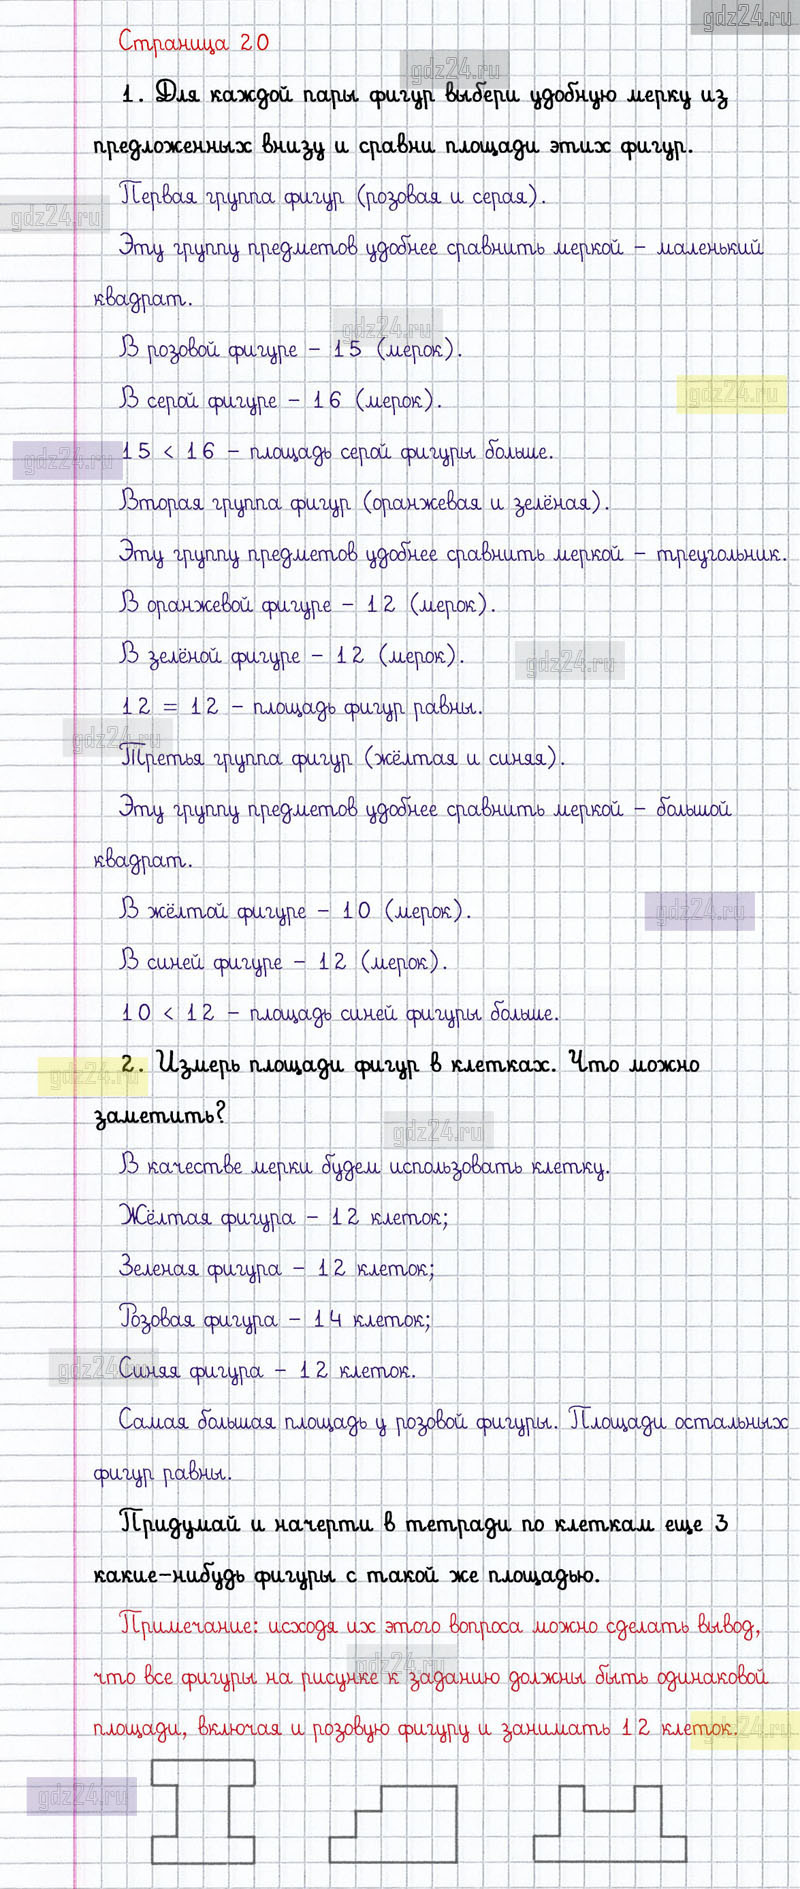 gdz24.ru
Страница 20
gdz24.ru
1. Для каждой пары фигур выбери удобную мерку из
предложенных внизу и сравни площади этих фигур.
Первая группа фигур (розовая и серая).
gdz24.ru
Эту группу предметов удобнее сравнить меркой – маленький
квадрат.
gdz24.ru
В розовой фигуре – 15 (мерок).
gdz24.ru
В серой фигуре – 16 (мерок).
gdz24.ru
15 < 16 – площадь серой фигуры больше.
Вторая группа фигур (оранжевая и зелёная).
Эту группу предметов удобнее сравнить меркой – треугольник.
В оранжевой фигуре – 12 (мерок).
В зелёной фигуре – 12 (мерок).
gdz24.ru
12 = 12 – площадь фигур равны.
gdz24.ru
Третья группа фигур (жёлтая и синяя).
Эту группу предметов удобнее сравнить меркой – большой
квадрат.
В жёлтой фигуре – 10 (мерок).
gdz24.ru
В синей фигуре – 12 (мерок).
10 < 12 – площадь синей фигуры больше.
2. Измерь площади фигур в клетках. Что можно
gdz24.ru
заметить?
gdz24.ru
В качестве мерки будем использовать клетку.
Жёлтая фигура – 12 клеток;
Зеленая фигура – 12 клеток;
Розовая фигура – 14 клеток;
gdz24.ru
Синяя фигура – 12 клеток.
Самая большая площадь у розовой фигуры. Площади остальных
фигур равны.
Придумай и начерти в тетради по клеткам еще 3
какие-нибудь фигуры с такой же площадью.
Примечание: исходя их этого вопроса можно сделать вывод,
gdz24.ru
что все фигуры на рисунке к заданию должны быть одинаковой
площади, включая и розовую фигуру и занимать 12 клеток.
gdz24.ru
gdz24.ru